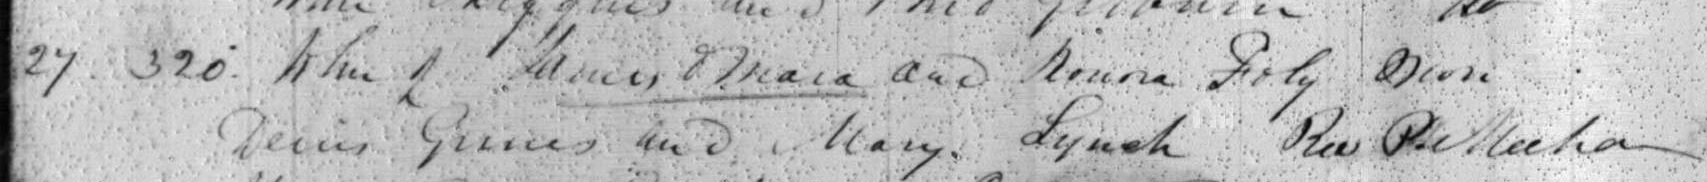 and
27. 320. John of James OMara and Honora Foly
Denis Grines and Mary Lynch Rev P. Meehan